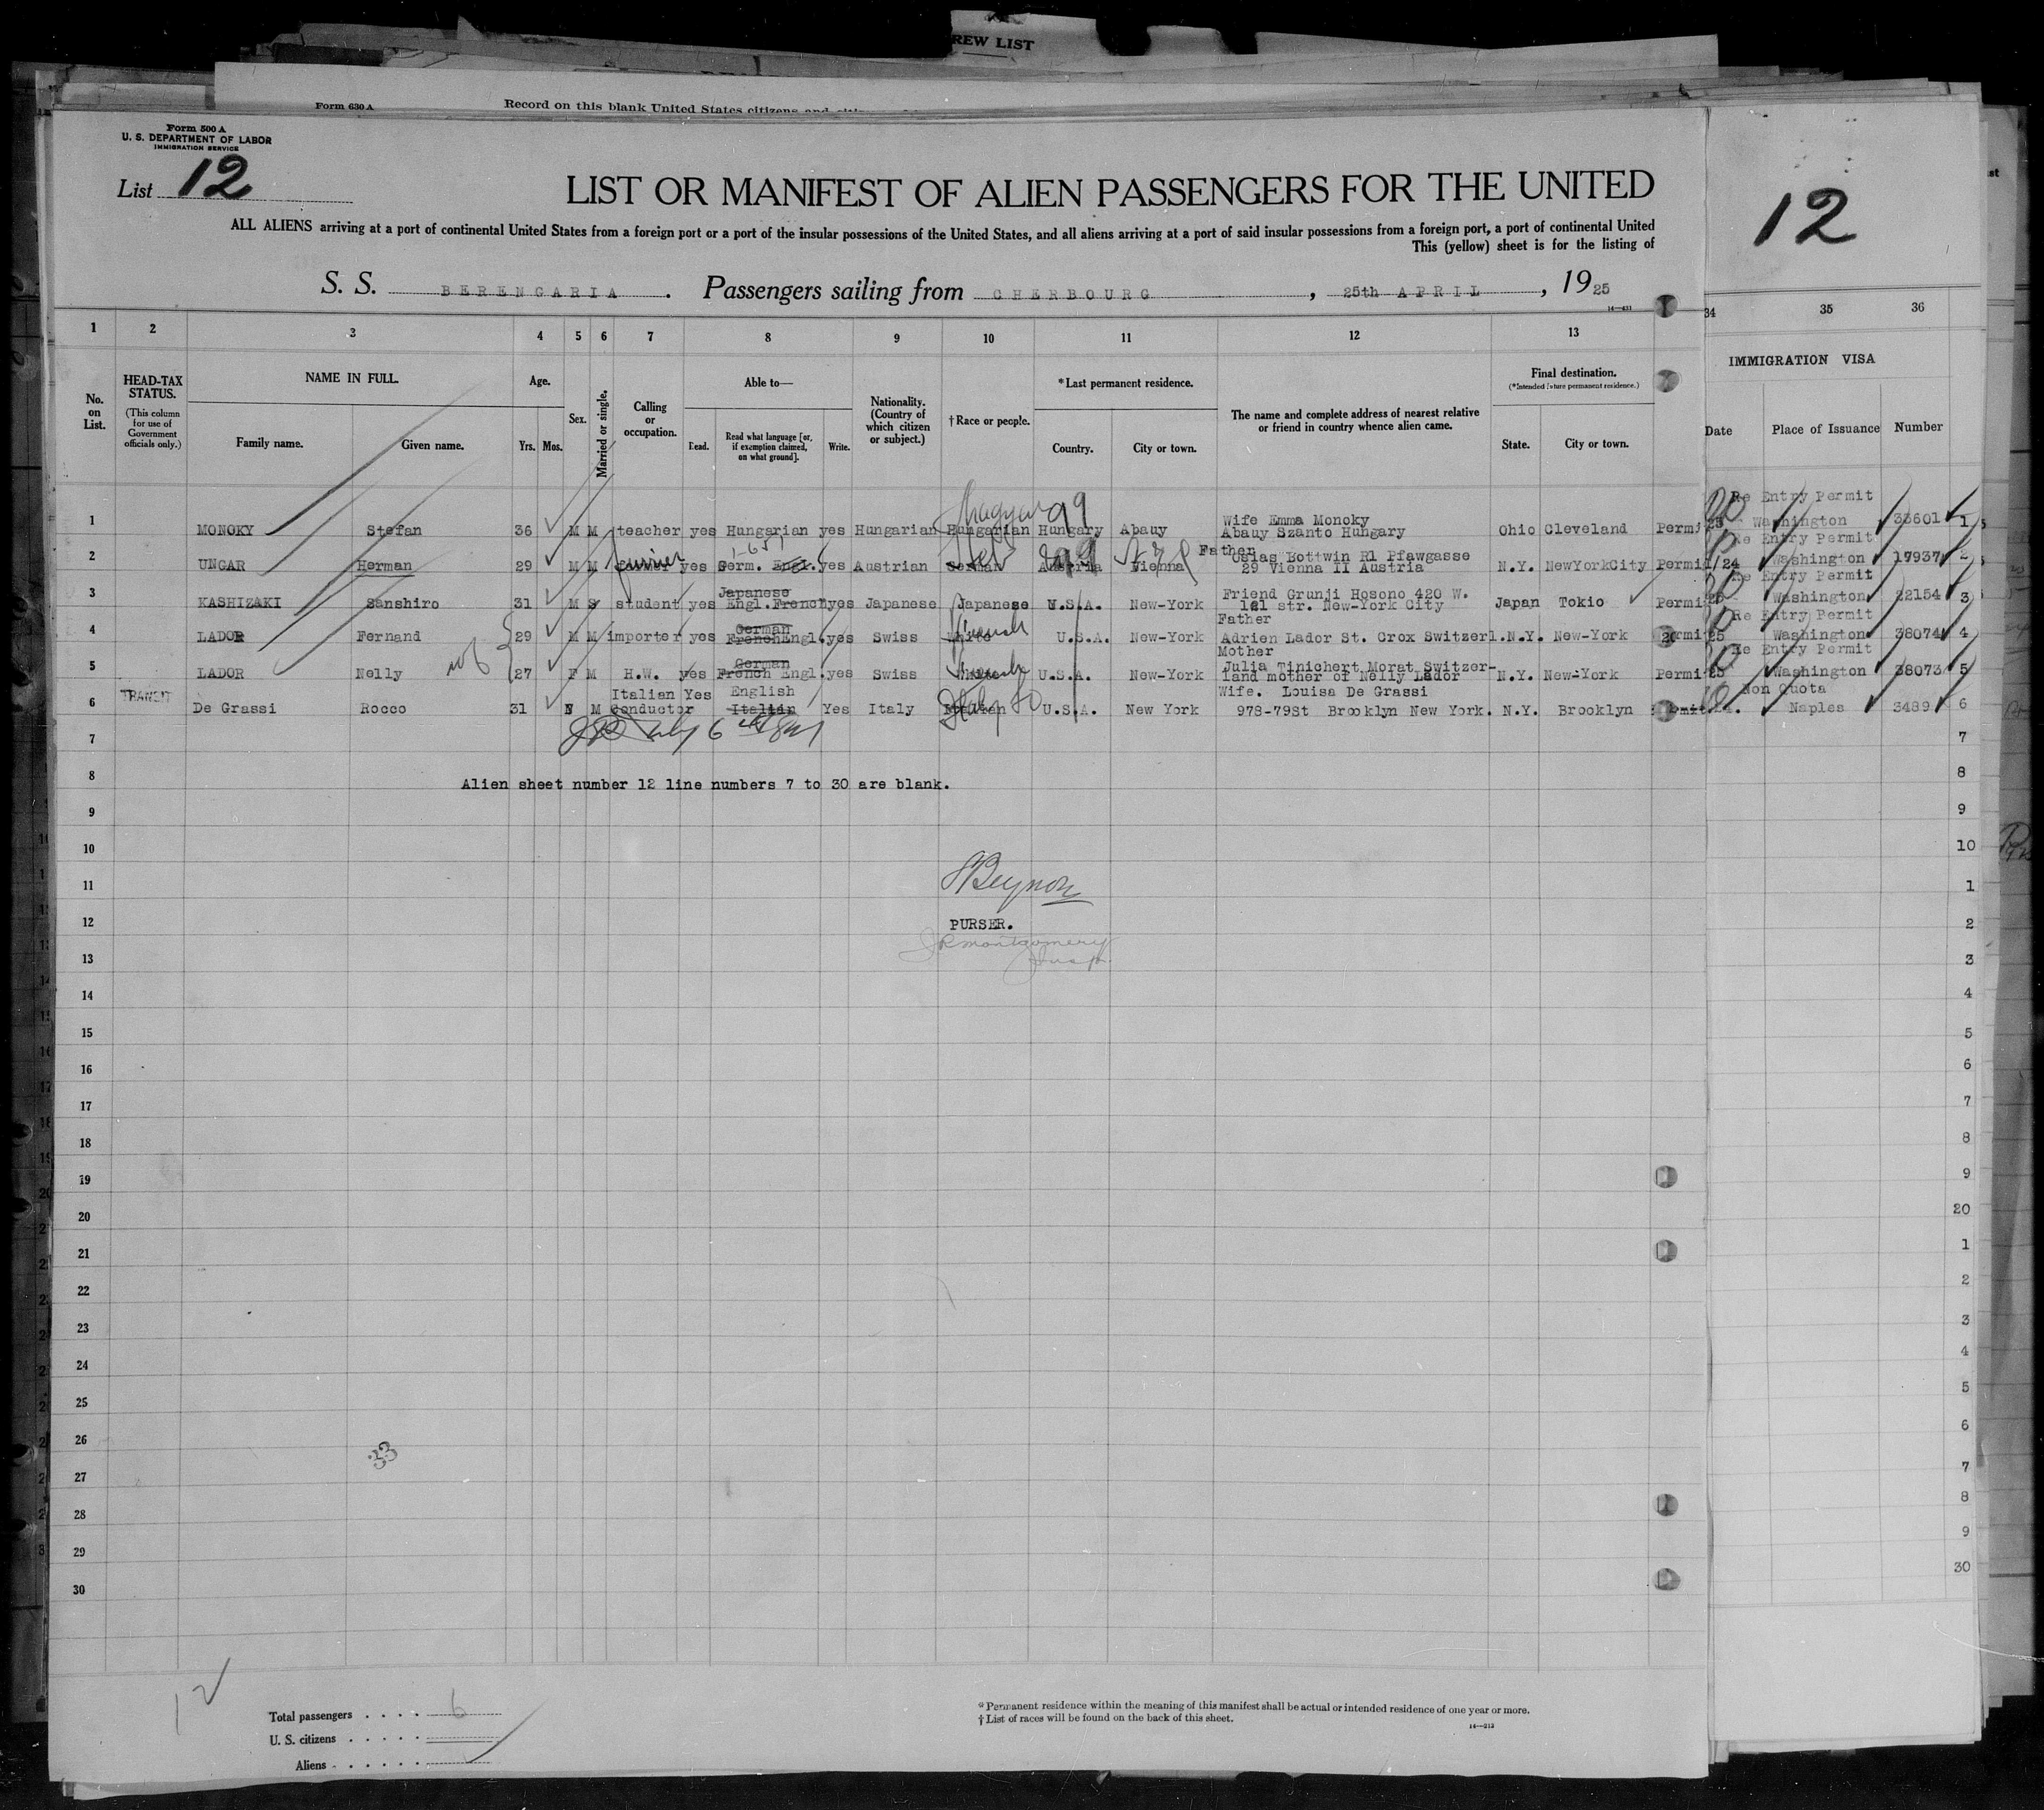 REW LIST
Form 630 A
Record on this blank United States citizens and
Form 500 A
U. S. DEPARTMENT OF LABOR
IMMIGRATION SERVICE
List 12
LIST OR MANIFEST OF ALIEN PASSENGERS FOR THE UNITED
12
ALL ALIENS arriving at a port of continental United States from a foreign port or a port of the insular possessions of the United States, and all aliens arriving at a port of said insular possessions from a foreign port, a port of continental United
This (yellow) sheet is for the listing of
S. S. BERENGARIA. Passengers sailing from CHERBOURG, 25th APRIL, 1925
1 2 3 4 5 6 7 8 9 10 11 12 13 34 35 36
No. on List.
HEAD-TAX STATUS.
(This column for use of Government officials only.)
NAME IN FULL.
Family name. Given name.
Age.
Yrs. Mos.
Sex.
Married or single.
Calling or occupation.
Able to—
Read. Read what language [or, if exemption claimed, on what ground]. Write.
Nationality. (Country of which citizen or subject.)
†Race or people.
*Last permanent residence.
Country. City or town.
The name and complete address of nearest relative or friend in country whence alien came.
Final destination.
(*Intended future permanent residence.)
State. City or town.
IMMIGRATION VISA
Date Place of Issuance Number
Magyar 99 Re Entry Permit
1 MONOKY Stefan 36 M M teacher yes Hungarian yes Hungarian Hungarian Hungary Abauy Wife Emma Monoky Abauy Szanto Hungary Ohio Cleveland Permi 25 Washington 33601 1
Re Entry Permit
2 UNGAR Herman 29 M M furrier yes Germ. Engl. yes Austrian German Austria Vienna Father Osias Bottwin R1 Pfawgasse 29 Vienna II Austria N.Y. NewYorkCity Permi 1/24 Washington 17937 2
Re Entry Permit
3 KASHIZAKI Sanshiro 31 M S student yes Japanese Engl.French yes Japanese Japanese U.S.A. New-York Friend Grunji Hosono 420 W. 121 str. New-York City Japan Tokio Permi 25 Washington 22154 3
Re Entry Permit
4 LADOR Fernand 29 M M importer yes German French Engl. yes Swiss White French U.S.A. New-York Father Adrien Lador St. Crox Switzerl. N.Y. New-York Permi 25 Washington 38074 4
Re Entry Permit
5 LADOR Nelly 27 F M H.W. yes German French Engl. yes Swiss White French U.S.A. New-York Mother Julia Tinichert Morat Switzer-land mother of Nelly Lador N.Y. New-York Permi 25 Washington 38073 5
Non Quota
6 TRANSIT De Grassi Rocco 31 M M Italian Conductor Yes English Italian Yes Italy Italian U.S.A. New York Wife. Louisa De Grassi 978-79St Brooklyn New York. N.Y. Brooklyn Naples 3489 6
7 7
8 Alien sheet number 12 line numbers 7 to 30 are blank. 8
9 9
10 10
11 Beynon 1
12 PURSER. 2
JR Montgomery
Insp.
13 3
14 4
15 5
16 6
17 7
18 8
19 9
20 20
21 1
22 2
23 3
24 4
25 5
26 6
33
27 7
28 8
29 9
30 30
12
Total passengers . . . . 6
U. S. citizens . . . . .
Aliens . . . . . .
*Permanent residence within the meaning of this manifest shall be actual or intended residence of one year or more.
†List of races will be found on the back of this sheet.